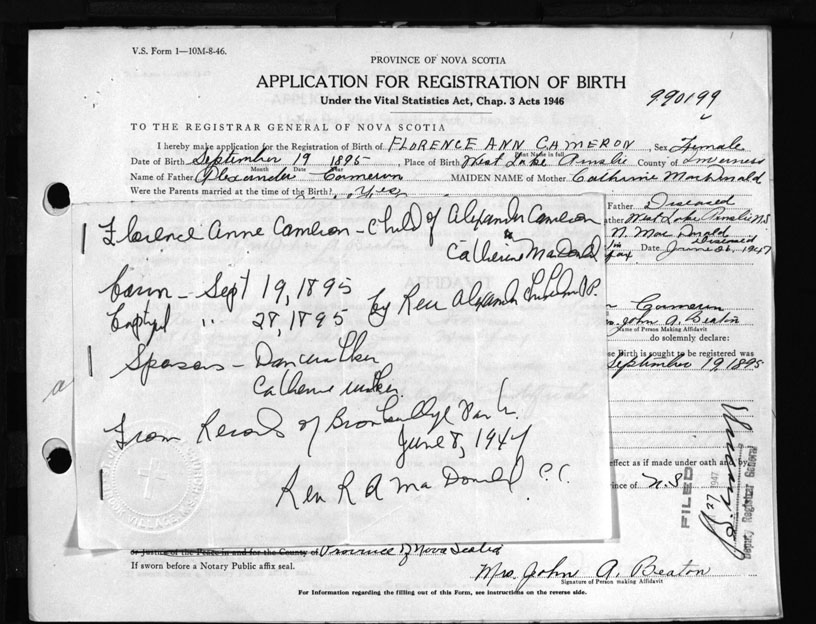 V.S. Form 1—10M-8-46.
PROVINCE OF NOVA SCOTIA
APPLICATION FOR REGISTRATION OF BIRTH
Under the Vital Statistics Act, Chap. 3 Acts 1946
990199
TO THE REGISTRAR GENERAL OF NOVA SCOTIA
I hereby make application for the Registration of Birth of FLORENCE ANN CAMERON, Sex Female
Print Name in full
Date of Birth September 19 1895, Place of Birth West Lake Ainslie County of Inverness
Month Date
Name of Father Alexander Cameron MAIDEN NAME of Mother Catharine MacDonald
Were the Parents married at the time of the Birth? Yes
Father Diseased
ather West Lake Ainslie N.S
N. Mac Donald
Diseased
Date June 26, 1947
Florence Anne Cameron - Child of Alexander Cameron
& Catherine MacDonald
born - Sept 19, 1895
Baptized " 28, 1895 by Rev Alexander P.P.
Sponsors - Dan Walker
Catherine Walker
From Records of Brook Village Parish.
June 8, 1947
Rev R A MacDonald P.P.
Cameron
John A. Beaton
Name of Person Making Affidavit
do solemnly declare:
se Birth is sought to be registered was
September 19, 1895
effect as if made under oath and by
ince of N.S
FILED
27 1947
Deputy Registrar General
or Justice of the Peace in and for the County of Province of Nova Scotia
If sworn before a Notary Public affix seal.
Mrs. John A. Beaton
Signature of Person making Affidavit
For Information regarding the filling out of this Form, see instructions on the reverse side.